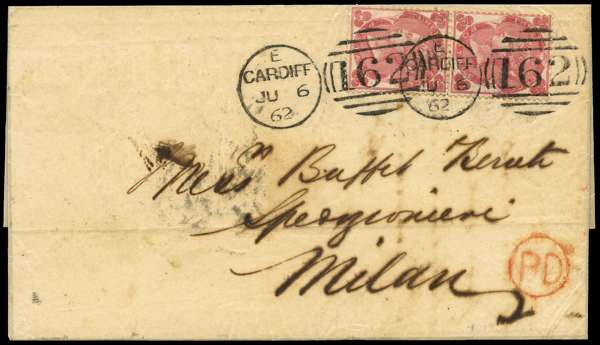 E
CARDIFF
JU 6
62
162
E
CARDIFF
JU 6
62
162
Mess Buffet
Milan
PD